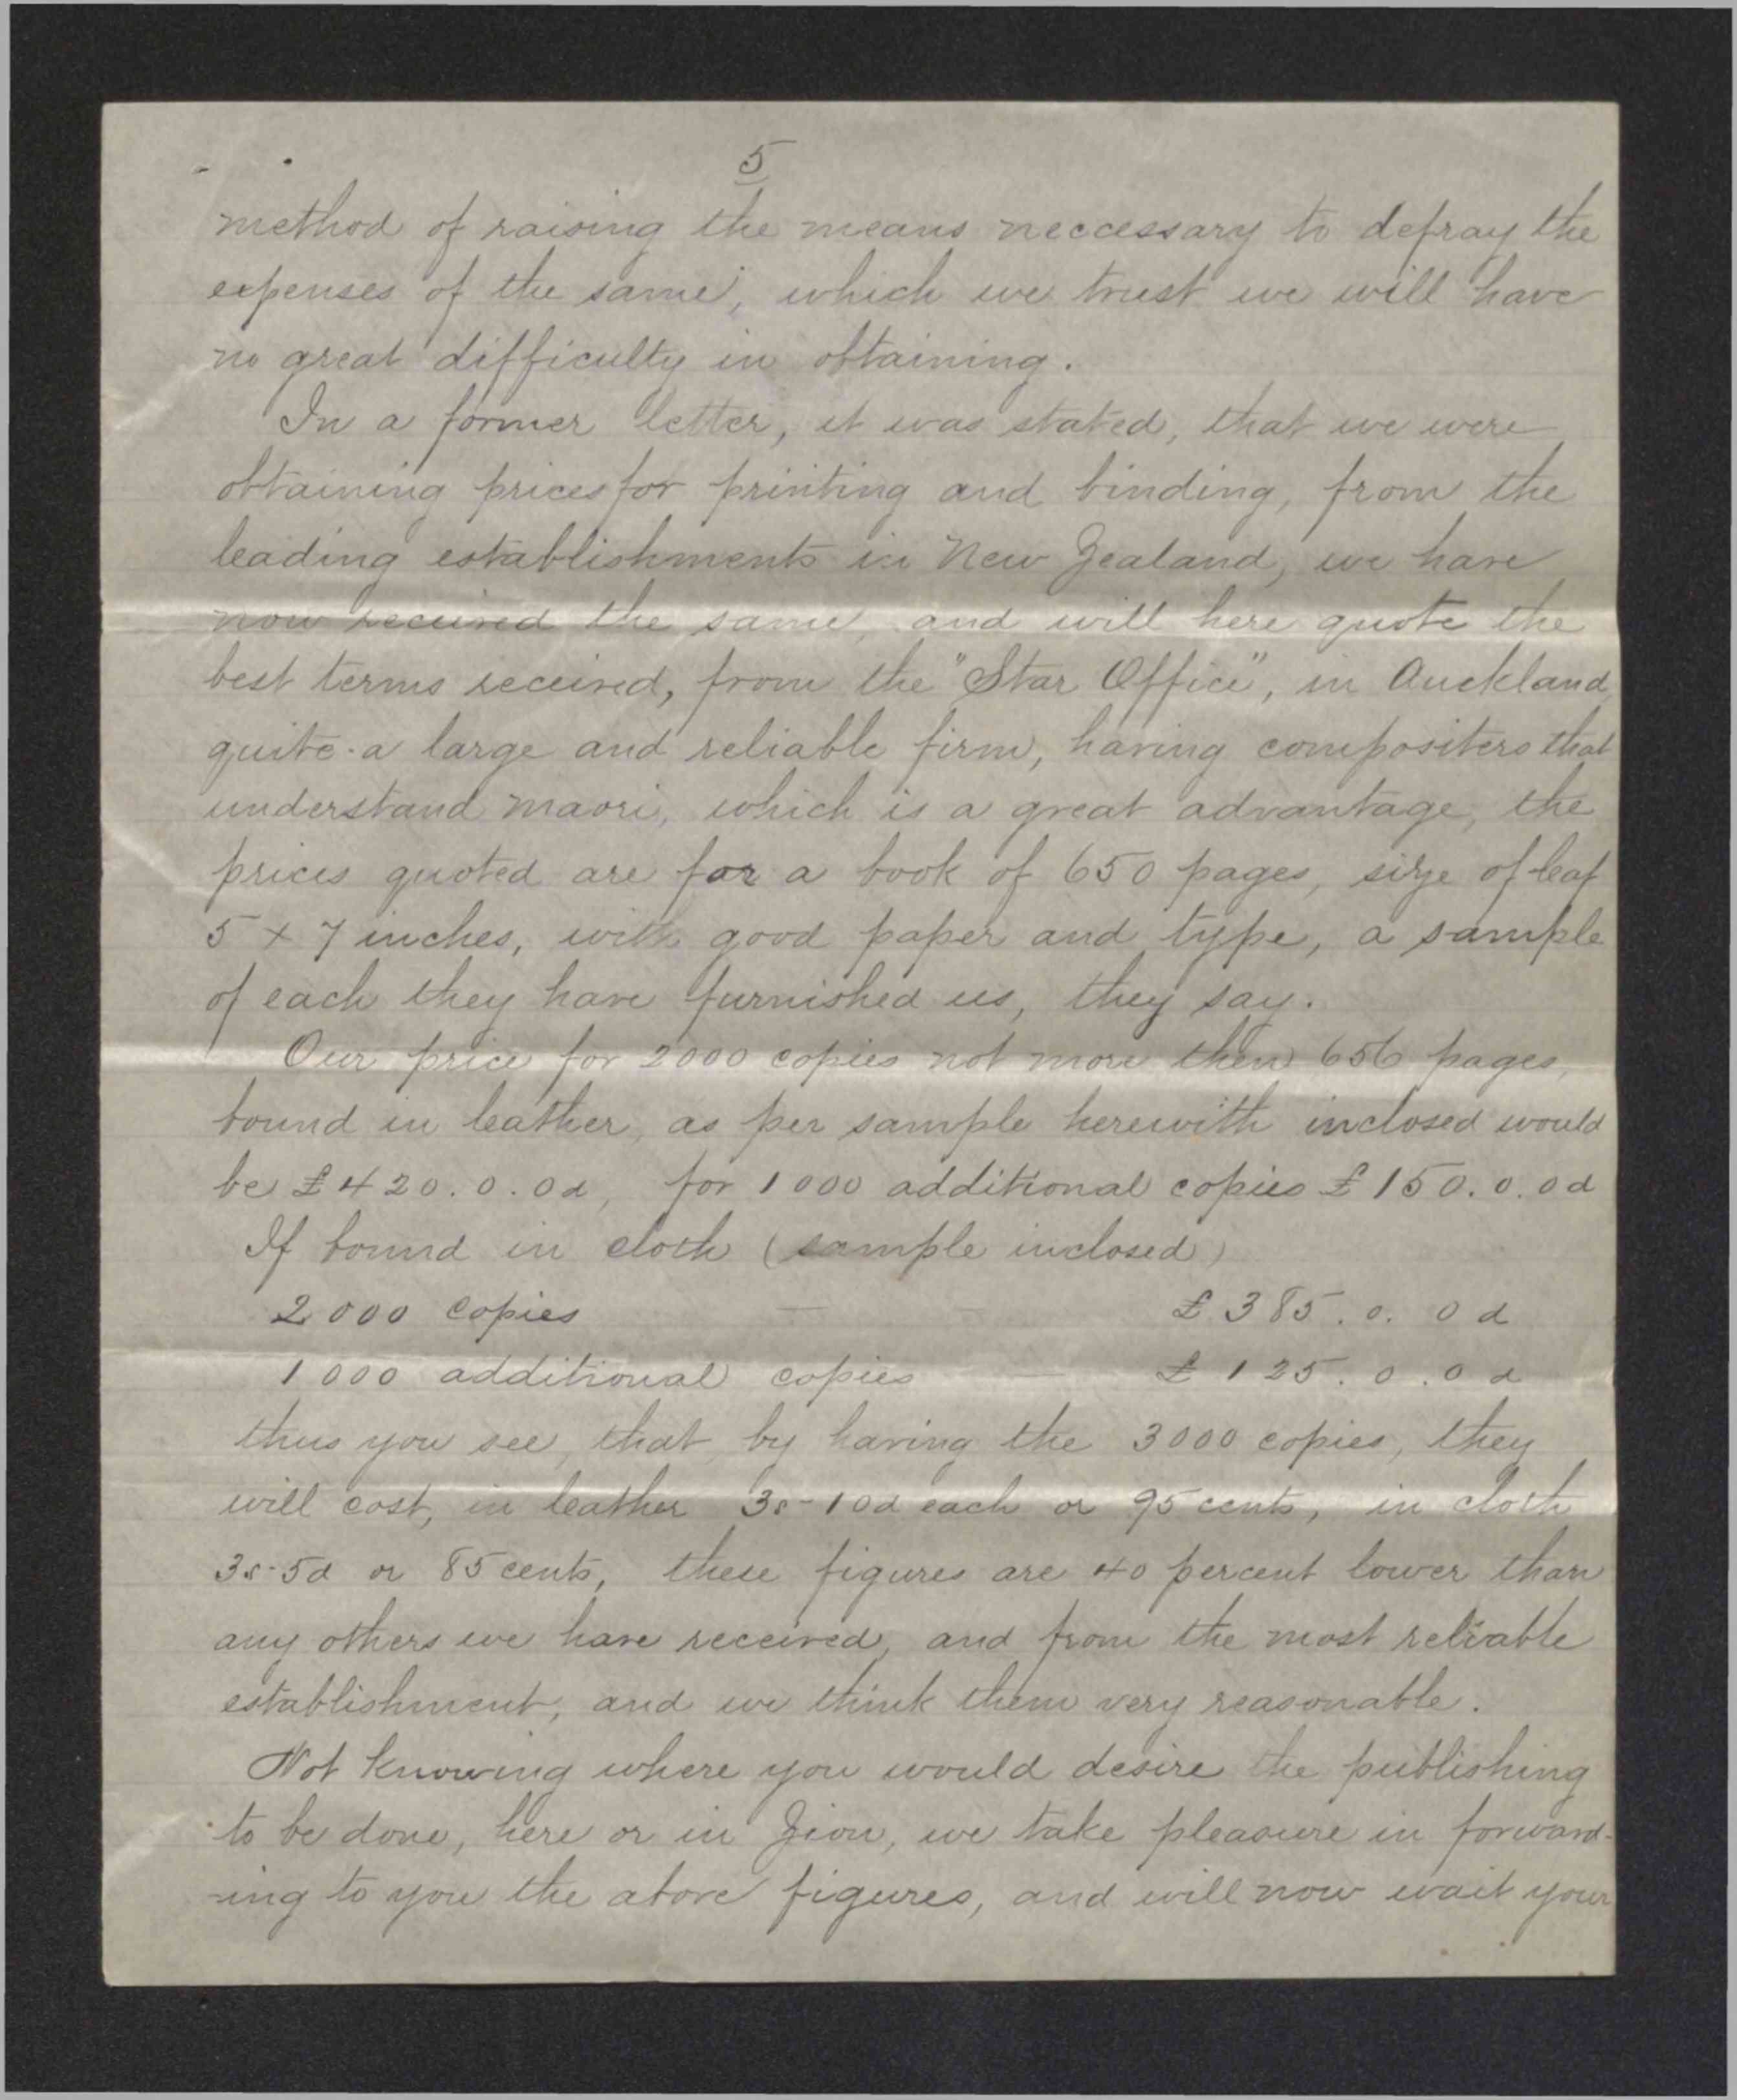 5
method of raising the means neccessary to defray the
expenses of the same, which we trust we will have
no great difficulty in obtaining.
In a former letter, it was stated, that we were
obtaining prices for printing and binding, from the
leading establishments in New Zealand, we have
now received the same and will here quote the
best terms received, from the "Star Office", in Auckland,
quite a large and reliable firm, having compositers that
understand maori, which is a great advantage, the
prices quoted are for a book of 650 pages, size of leaf
5 x 7 inches, with good paper and type, a sample
of each they have furnished us, they say.
Our price for 2000 copies not more then 656 pages,
bound in leather, as per sample herewith inclosed would
be £420.0.0d, for 1000 additional copies £150.0.0d
If bound in cloth (sample inclosed)
2000 copies — — £385.0.0d
1000 additional copies — £125.0.0d
thus you see, that by having the 3000 copies, they
will cost, in leather 3s-10d each or 95 cents, in cloth
3s-5d or 85 cents, these figures are 40 percent lower than
any others we have received, and from the most reliable
establishment, and we think them very reasonable.
Not knowing where you would desire the publishing
to be done, here or in Zion, we take pleasure in forward-
-ing to you the above figures, and will now wait your